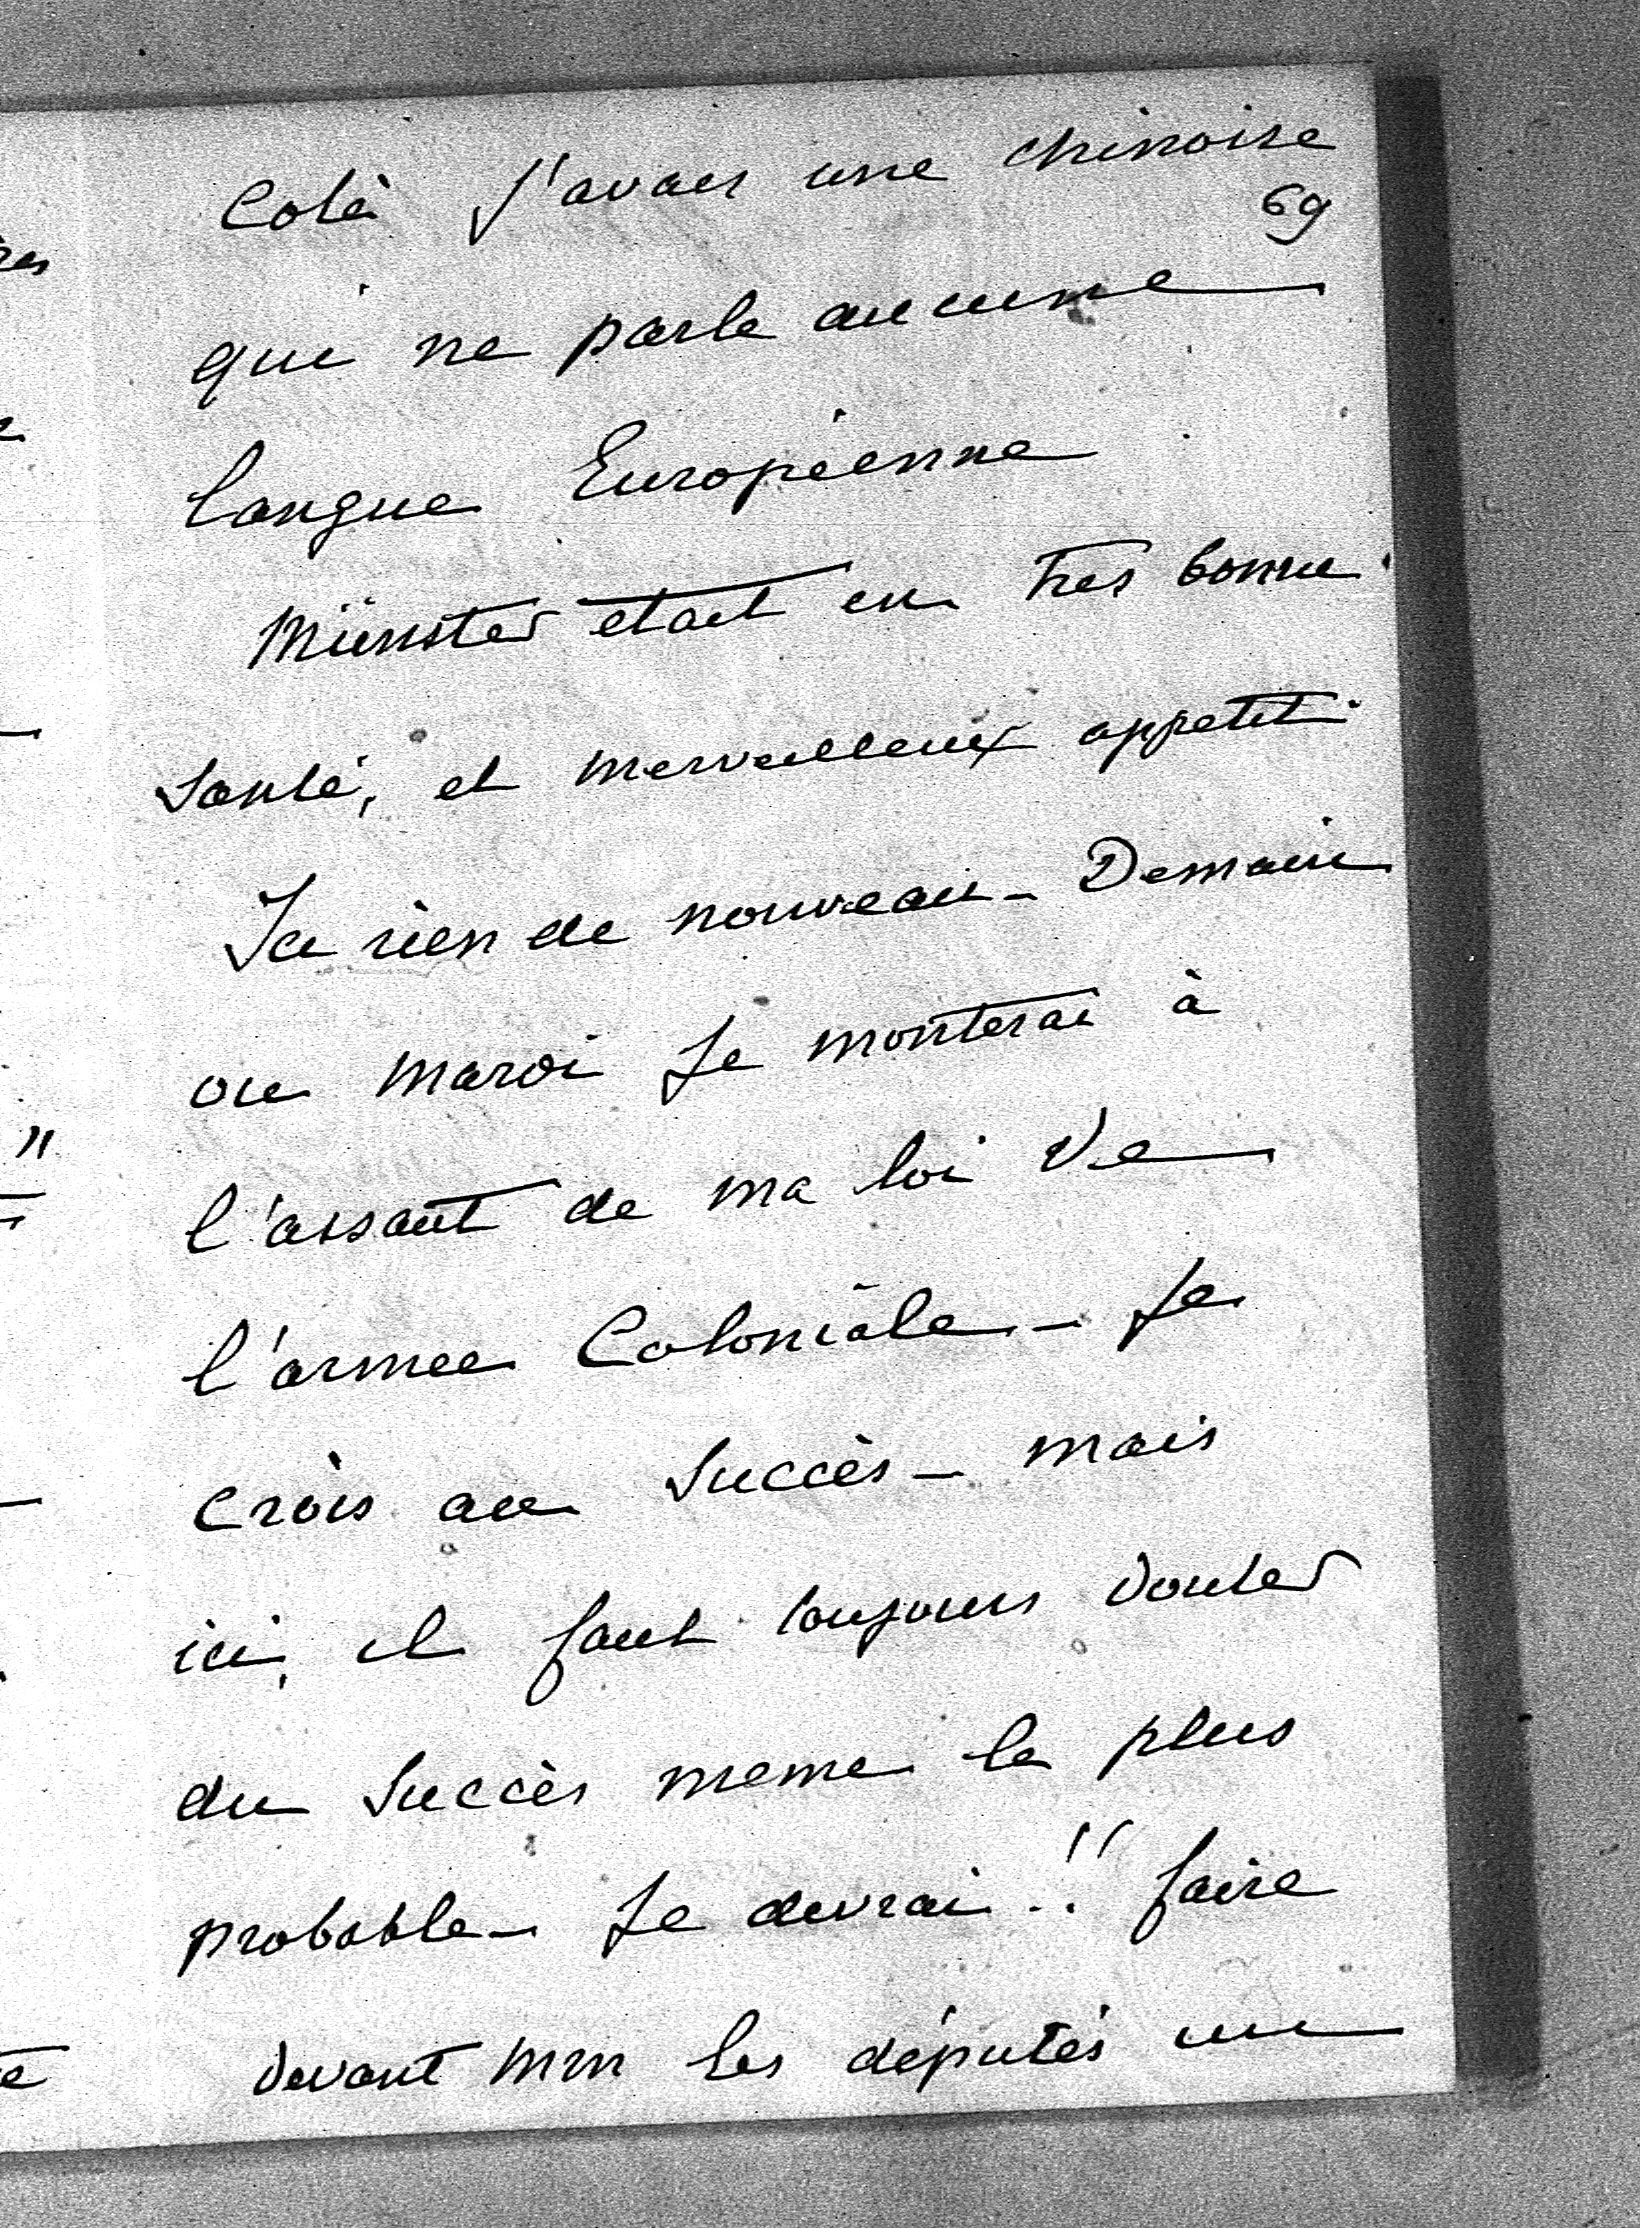 Coté j'avais une chinoise
69
qui ne parle aucune
langue Européenne
Münster etait en tres bonne
Santé, et merveilleux appetit.
Ici rien de nouveau - Demain
ou mardi je monterai à
l'assaut de ma loi de
l'armee Coloniale - Je
crois au Succès - mais
ici, il faut toujours douter
du Succès meme le plus
probable - Je devrai !! faire
devant MM les députés un